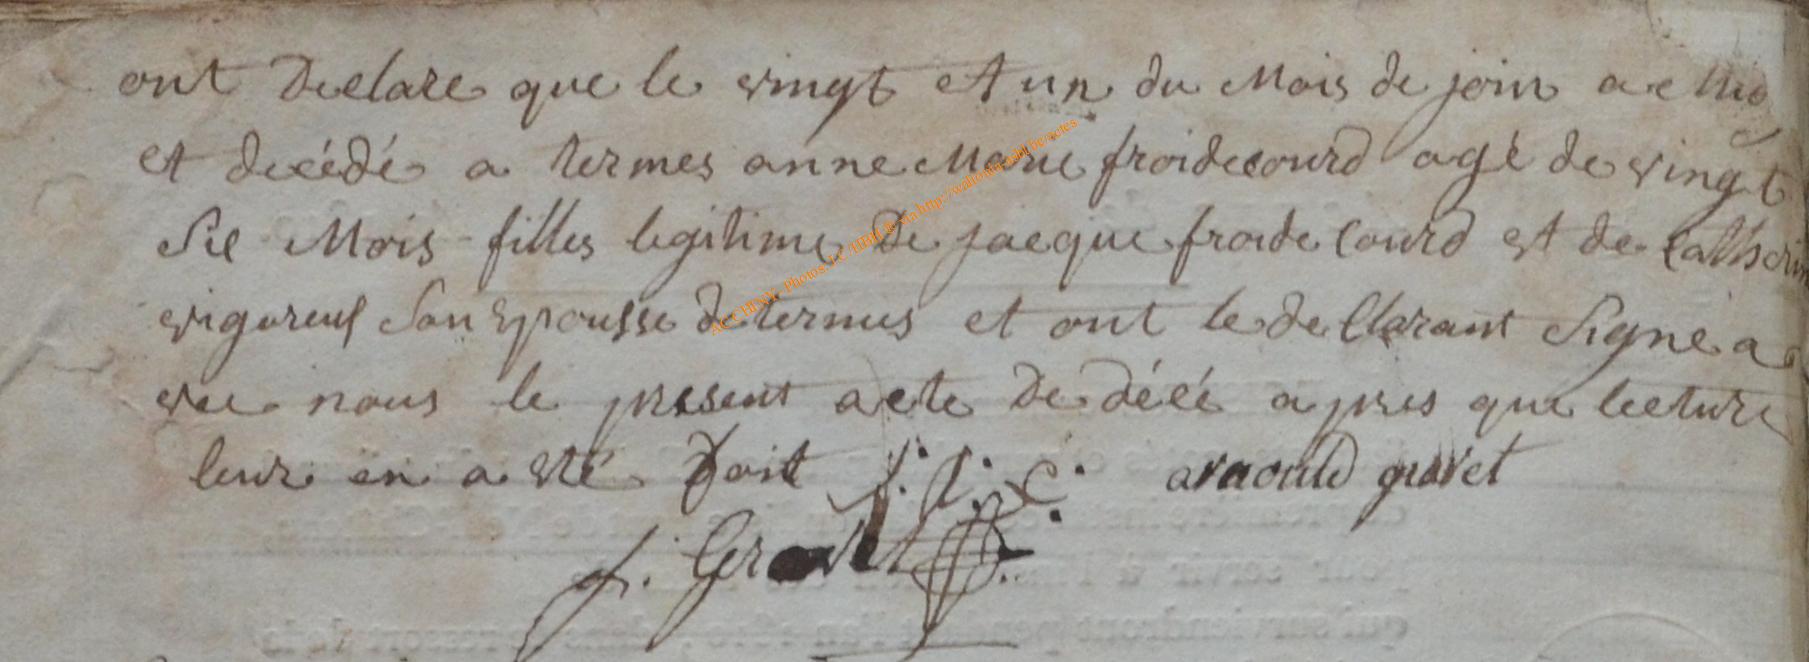 ont Declare que le vingt et un du Mois de join a
et decédé a termes anne Marie froidecourd agé de vingt
Sie Mois filles legitime de jacque froide Courd et de Catherin
vigoreux Son Epousse de termes et ont le deCllarant Signe a
vec nous le present acte De décé apres que lecture
leur en a eté fait arnould gravet
f. Gravet
ACCHINY - Photos via http://wallonia-asbl.be/actes